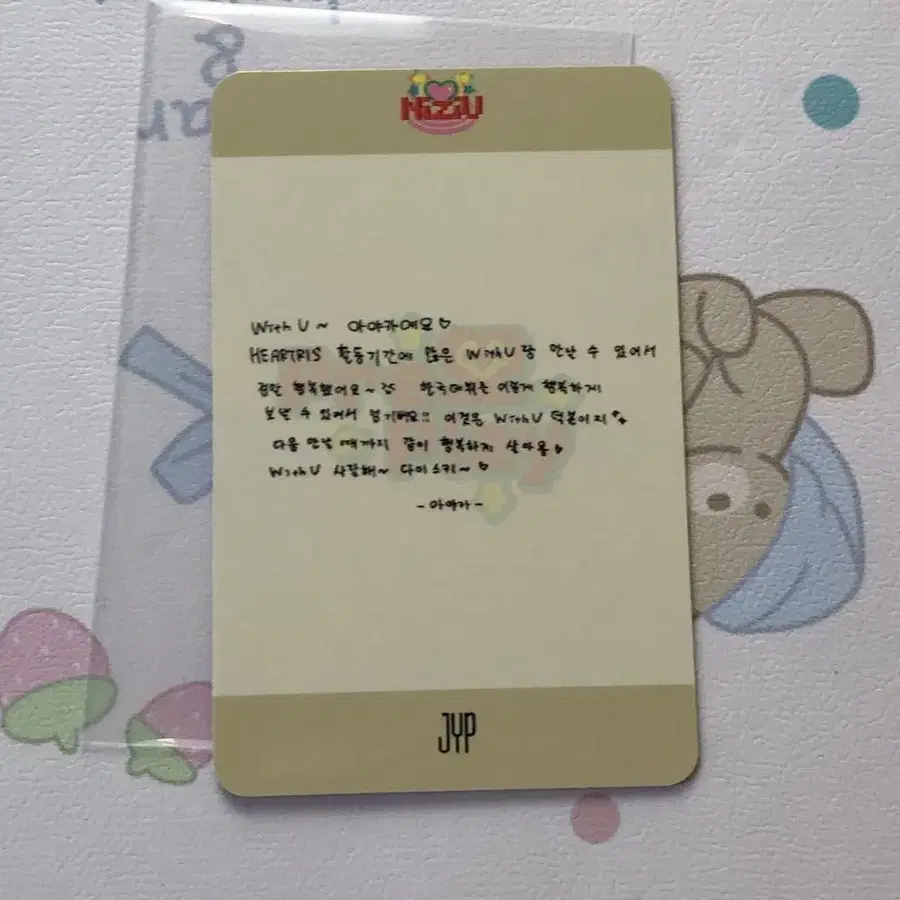 NiziU
WithU~ 아야카에요♡
HEARTRIS 활동기간에 많은 WithU랑 만날 수 있어서
정말 행복했어요~ 한국데뷔를 이렇게 행복하게
보낼 수 있어서 기뻐요!! 이것은 WithU 덕분이지
다음 만날 때까지 같이 행복하게 살아용♡
WithU 사랑해~ 다이스키~♡
-아야카-
JYP